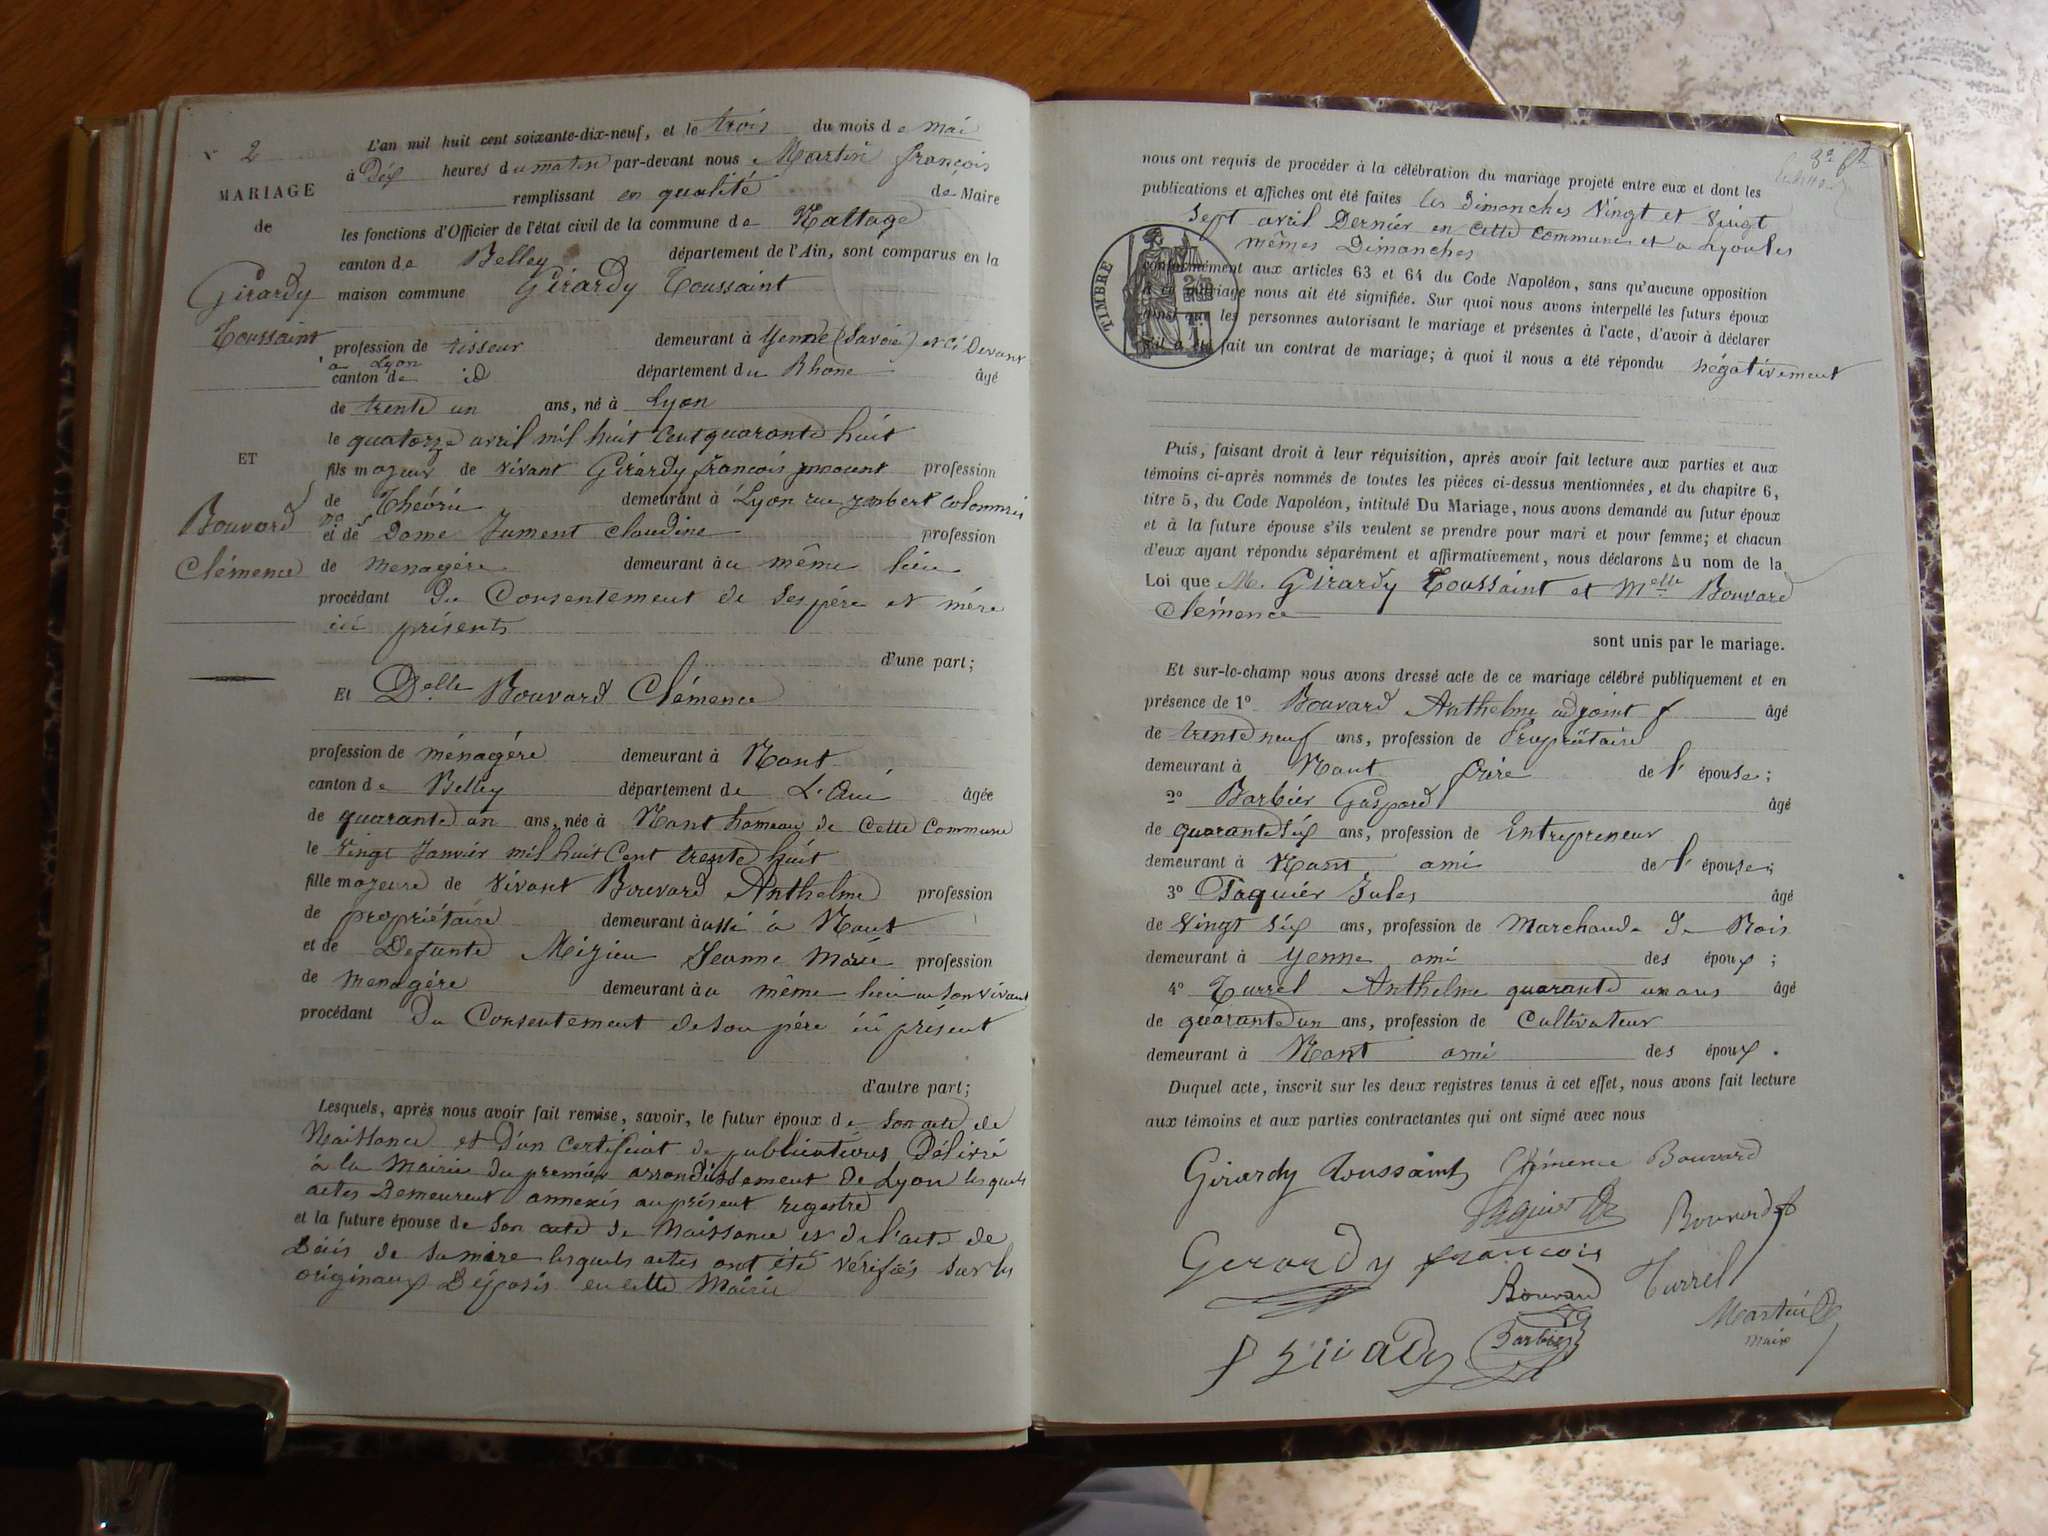 N° 2
MARIAGE
de
Girardy
Toussaint
ET
Bouvard
Clémence
L'an mil huit cent soixante-dix-neuf, et le trois du mois de mai
à Dix heures du matin par-devant nous Martin françois
remplissant en qualité de Maire
les fonctions d'Officier de l'état civil de la commune de Nattage
canton de Belley département de l'Ain, sont comparus en la
maison commune Girardy Toussaint
profession de tisseur demeurant à Yenne (Savoie) et ci Devant
à Lyon
canton de id département du Rhone âgé
de trente un ans, né à Lyon
le quatorze avril mil huit Cent quarante huit
fils majeur de vivant Girardy françois profession
de demeurant à Lyon rue
et de Dame Jument Claudine profession
de menagère demeurant au même lieu
procédant Du Consentement de ses père et mère
ici présents
d'une part;
Et Delle Bouvard Clémence
profession de ménagère demeurant à Nant
canton de Belley département de L'Ain âgée
de quarante un ans, née à Nant hameau de Cette Commune
le Vingt Janvier mil huit Cent trente huit
fille majeure de vivant Bouvard Anthelme profession
de propriétaire demeurant aussi à Nant
et de Defunte Mizieu Jeanne Marie profession
de menagère demeurant au même lieu en son vivant
procédant Du Consentement de son père ici présent
d'autre part;
Lesquels, après nous avoir fait remise, savoir, le futur époux de son acte de
Naissance et D'un Certificat de publications Délivré
à la Mairie du premier arrondissement de Lyon lesquels
actes Demeurent annexés au présent registre
et la future épouse de son acte de Naissance et de l'acte de
Décès de sa mère lesquels actes ont été vérifiés sur les
originaux Déposés en cette Mairie
nous ont requis de procéder à la célébration du mariage projeté entre eux et dont les
publications et affiches ont été faites les Dimanches Vingt et Vingt
sept avril Dernier en Cette Commune et a Lyon les
mêmes Dimanches
TIMBRE
conformément aux articles 63 et 64 du Code Napoléon, sans qu'aucune opposition
à ce mariage nous ait été signifiée. Sur quoi nous avons interpellé les futurs époux
ainsi que les personnes autorisant le mariage et présentes à l'acte, d'avoir à déclarer
s'il a été fait un contrat de mariage; à quoi il nous a été répondu négativement
Puis, faisant droit à leur réquisition, après avoir fait lecture aux parties et aux
témoins ci-après nommés de toutes les pièces ci-dessus mentionnées, et du chapitre 6,
titre 5, du Code Napoléon, intitulé Du Mariage, nous avons demandé au futur époux
et à la future épouse s'ils veulent se prendre pour mari et pour femme; et chacun
d'eux ayant répondu séparément et affirmativement, nous déclarons Au nom de la
Loi que M. Girardy Toussaint et Melle Bouvard
Clémence
sont unis par le mariage.
Et sur-le-champ nous avons dressé acte de ce mariage célébré publiquement et en
présence de 1° Bouvard Anthelme adjoint âgé
de trente neuf ans, profession de Propriétaire
demeurant à Nant frère de l'épouse;
2° Barbier Gaspard âgé
de quarante six ans, profession de Entrepreneur
demeurant à Nant ami de l'épouse;
3° Paquier Jules âgé
de vingt six ans, profession de Marchand de Bois
demeurant à Yenne ami des époux;
4° Turrel Anthelme quarante un ans âgé
de quarante un ans, profession de Cultivateur
demeurant à Nant ami des époux.
Duquel acte, inscrit sur les deux registres tenus à cet effet, nous avons fait lecture
aux témoins et aux parties contractantes qui ont signé avec nous
Girardy Toussaint Clémence Bouvard
Paquier Bouvard
Gerardy francois
Bouvard Turrel
Martin
maire
Barbier